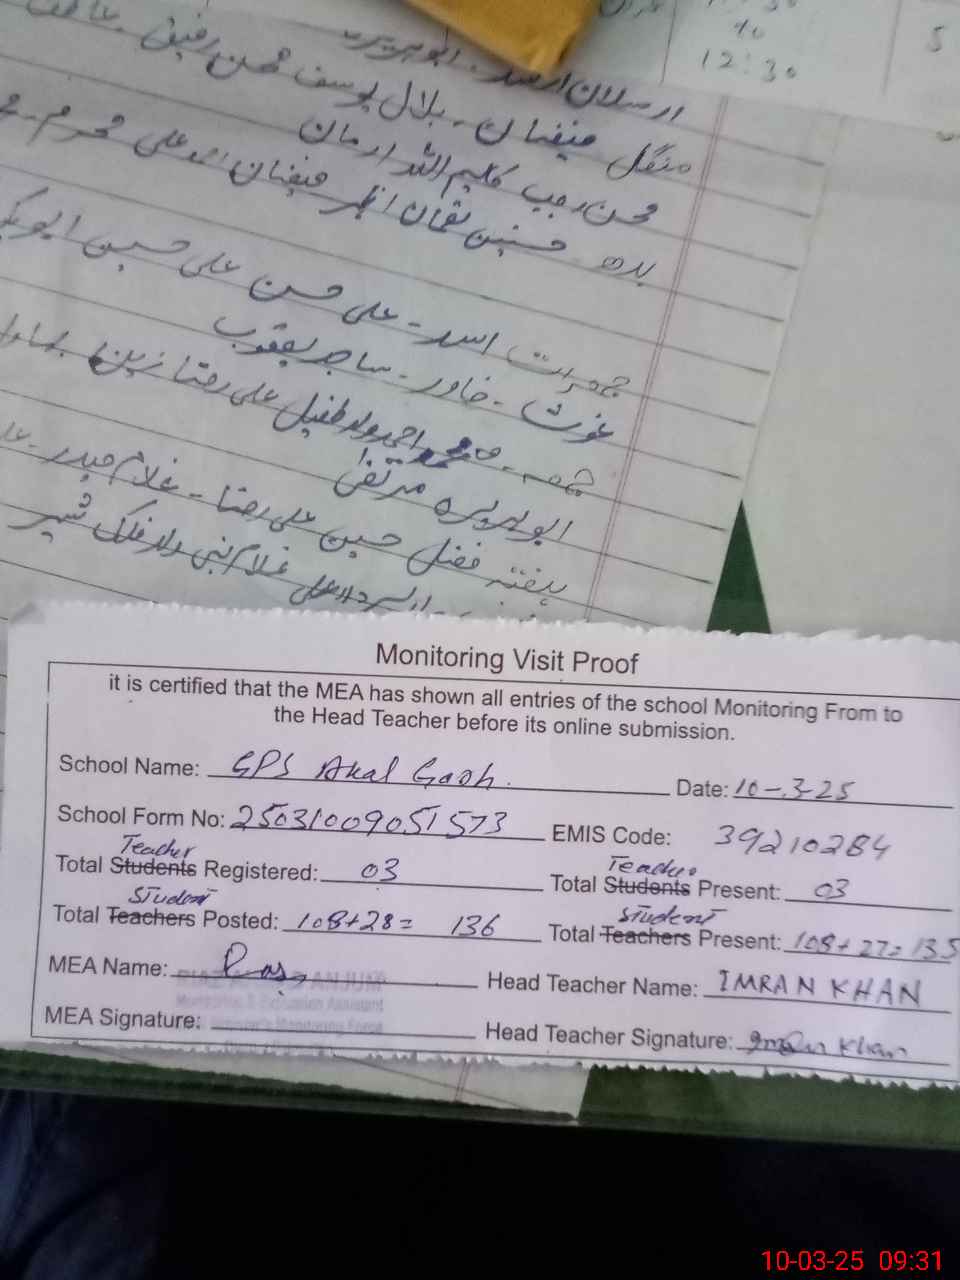 10
5
12:30
ارسلان ارشد - ابوہریرہ
منگل فیضان - بلال یوسف محسن رفیق
محسن رجب کلیم اللہ ارمان
بدھ حسنین لقمان اظہر فیضان اللہ علی محرم
جمعرات اسد - علی حسن علی حسین ابوبکر
غوث - خاور - ساجد یعقوب
جمعہ - احمد ولد طفیل علی رضا زین
ابوہریرہ مرتضیٰ
ہفتہ فضل حسین علی رضا - غلام حیدر - علی
غلام نبی ولد فلک شیر
Monitoring Visit Proof
it is certified that the MEA has shown all entries of the school Monitoring From to
the Head Teacher before its online submission.
School Name: GPS Akal Garh. Date: 10-3-25
School Form No: 25031009051573 EMIS Code: 39210284
Teacher Teacher
Total Students Registered: 03 Total Students Present: 03
Student Student
Total Teachers Posted: 108+28= 136 Total Teachers Present: 108+27=135
MEA Name: Head Teacher Name: IMRAN KHAN
ANJUM
MEA Signature: Head Teacher Signature: Imran Khan
10-03-25 09:31